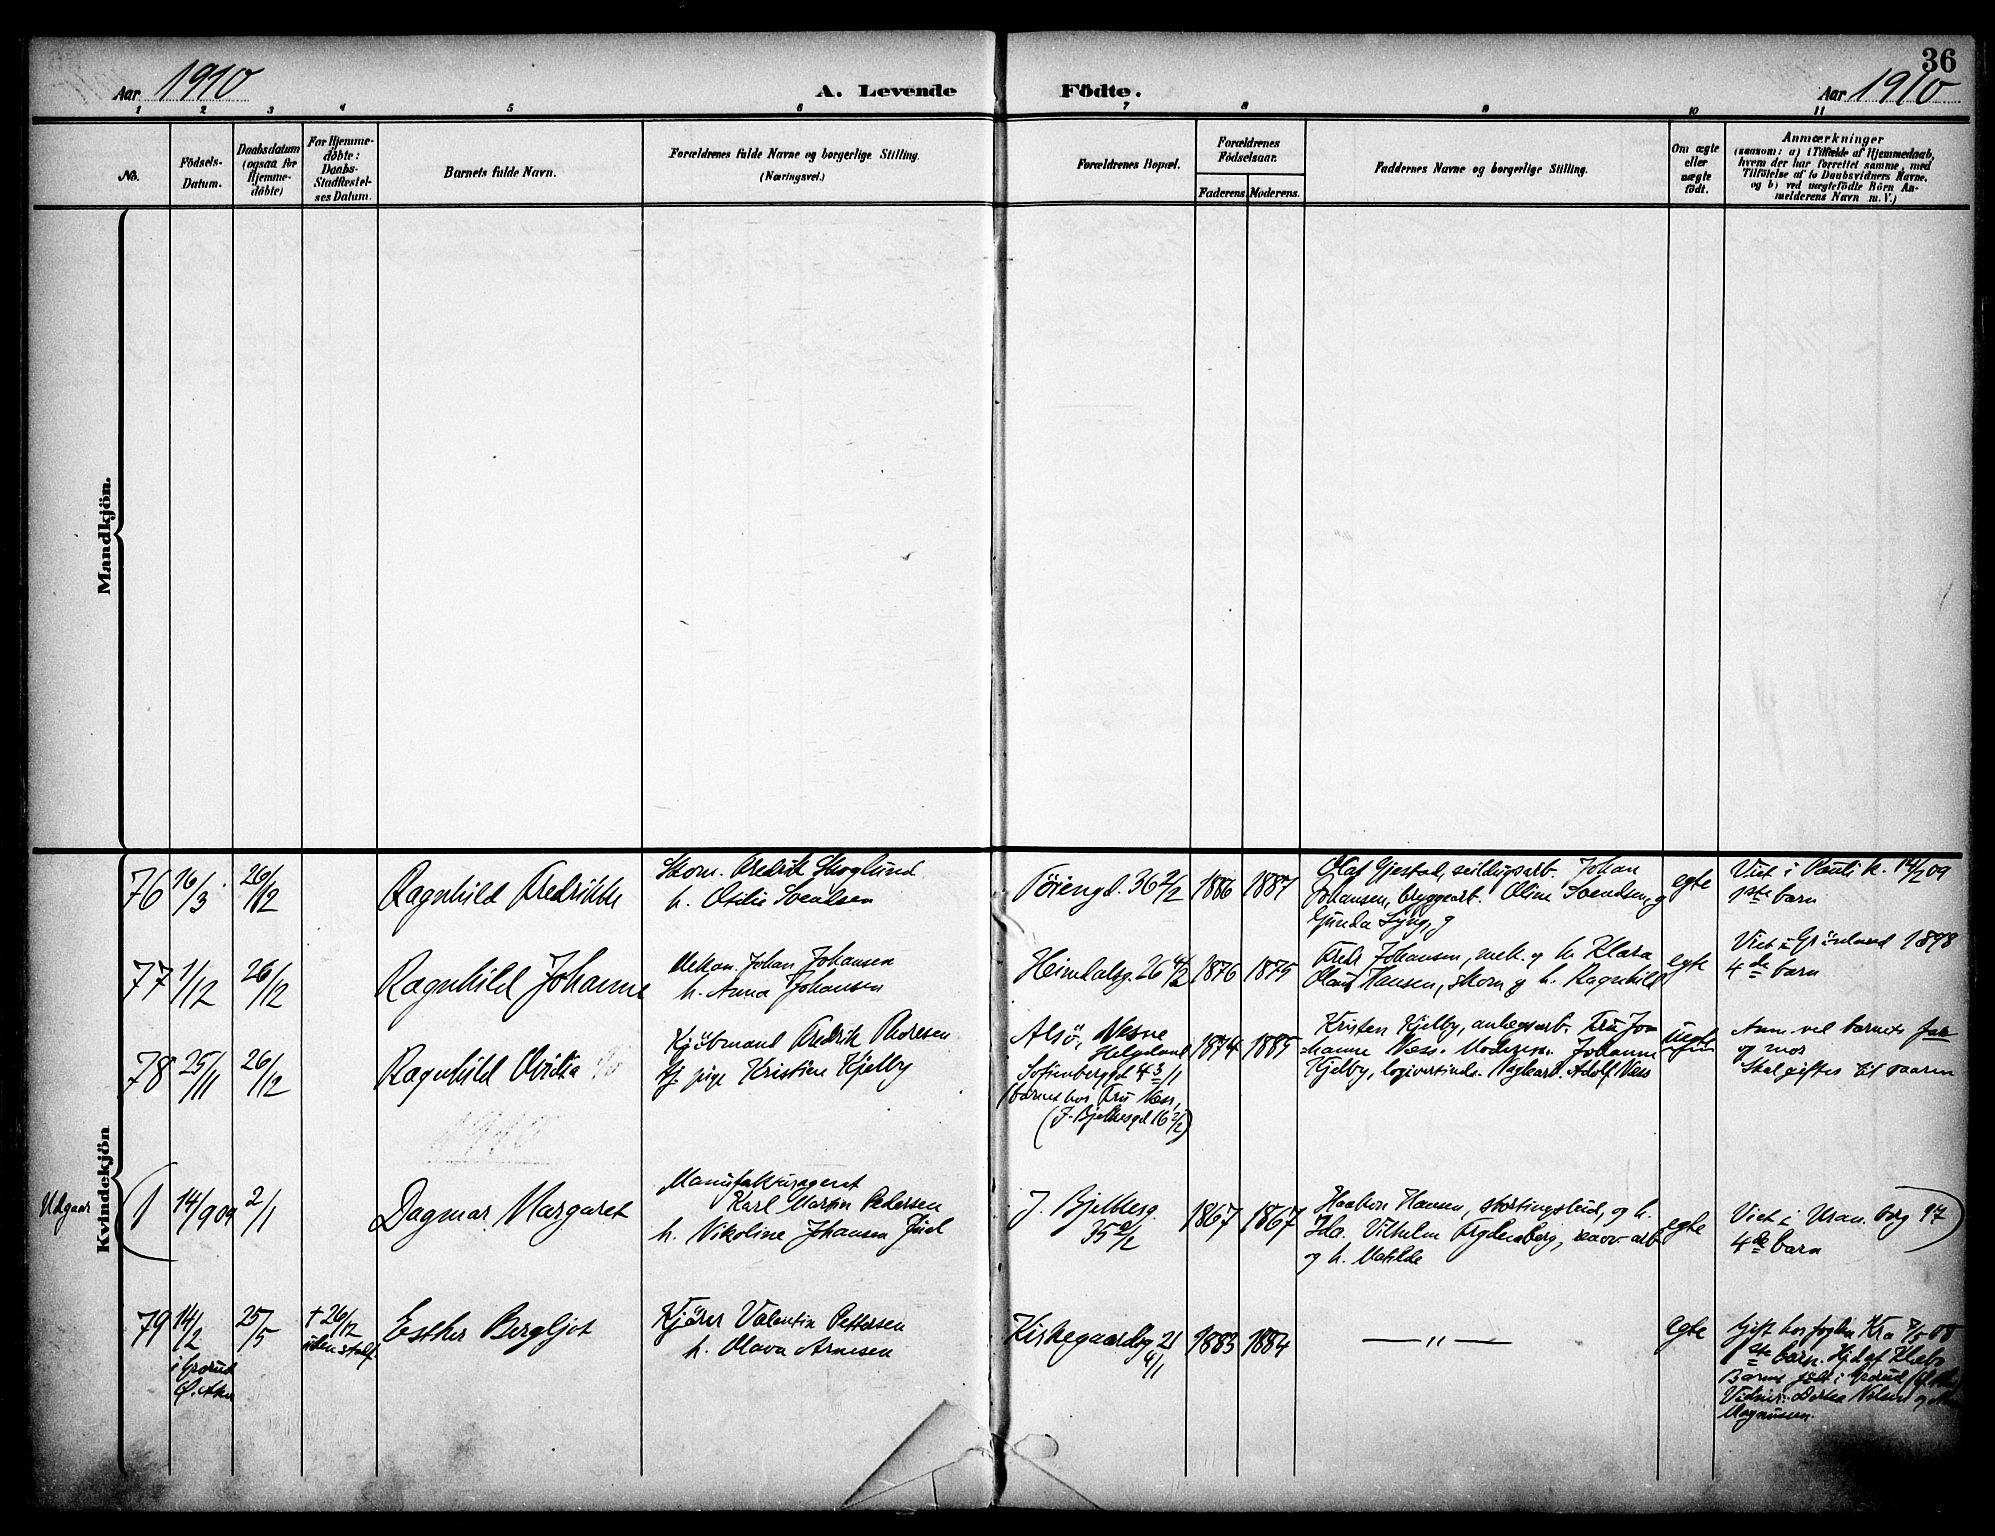 36
Aar 1910
A. Levende Födte.
Aar 1910
1 2 3 4 5 6 7 8 9 10 11
No.
Födsels-
Datum.
Daabsdatum
(ogsaa for
Hjemme-
döbte)
For Hjemme-
döbte:
Daabs-
Stadfæstel-
ses Datum.
Barnets fulde Navn.
Forældrenes fulde Navne og borgerlige Stilling.
(Næringsvei.)
Forældrenes Bopæl.
Forældrenes
Födselsaar.
Faderens. Moderens.
Faddernes Navne og borgerlige Stilling.
Om ægte
eller
uægte
födt.
Anmærkninger
(saasom: a) i Tilfælde af Hjemmedaab,
hvem der har forrettet samme, med
Tilföielse af to Daabsvidners Navne,
og b) ved uægtefödte Börn An-
melderens Navn m. V.)
Mandkjön.
Kvindekjön
76
16/3
26/12
Ragnhild Fredrikke
Skom. Fredrik Skoglund
h. Otilie Svendsen
Töiengd. 36 2/2
1886
1887
Olaf Gjestad, seildugsarb. Johan
Johansen, bryggearb. Oline Svendsen, g
Gunda Lyng, g
egte
Viet i Pauli k. 14/2 09
1ste barn
77
1/12
26/12
Ragnhild Johanne
Mekan. Johan Johansen
h. Anna Johansen
Heimdalsg. 26 4/2
1876
1875
Fredr. Johansen, mek. og h. Klara
Olaus Hansen, skom og h. Ragnhild
egte
Viet i Grönland 1898
4de barn
78
25/11
26/12
Ragnhild Ovidia
Kjöbmand Fredrik Thoresen
Tj. pige Kristine Kjelby
Alsö, Nesne
Helgeland
Sofienberggt 43/1
(barnet hos Fru Næss,
(J. Bjelkesgd 16 2/2)
1874
1885
Kristen Kjelby, anlægsarb. Fru Jo-
hanne Næss. Moderen. Johanne
Kjelby, logivertinde. Vognarb. Adolf Næss
uegte
Anm. ved barnets far
og mor
Skal giftes til vaaren
Udgaar
1
14/9 09
2/1
Dagmar Margaret
Manufakturagent
Karl Martin Pedersen
h. Nikoline Johansen Juel
J. Bjelkesg.
35 2/2
1867
1867
Haakon Hansen, stortingsbud, og h.
Ida. Vilhelm Frydensberg, snov- arb
og h. Matilde
egte
Viet i Uran. borg 97
4de barn
79
14/2
i Grorud
Ø. Aker
25/5
+ 26/12
uden stadf
Esther Bergljot
Kjörer Valentin Pettersen
h. Olava Arnesen
Kirkegaardsg 21
4/1
1883
1884
— „ —
egte
Gift hos fogden Kra 2/5 08
1ste barn. Hjd af Klebo
Barnet födt i Grorud
Vidner: Dortea Nilsen og
Magnussen.